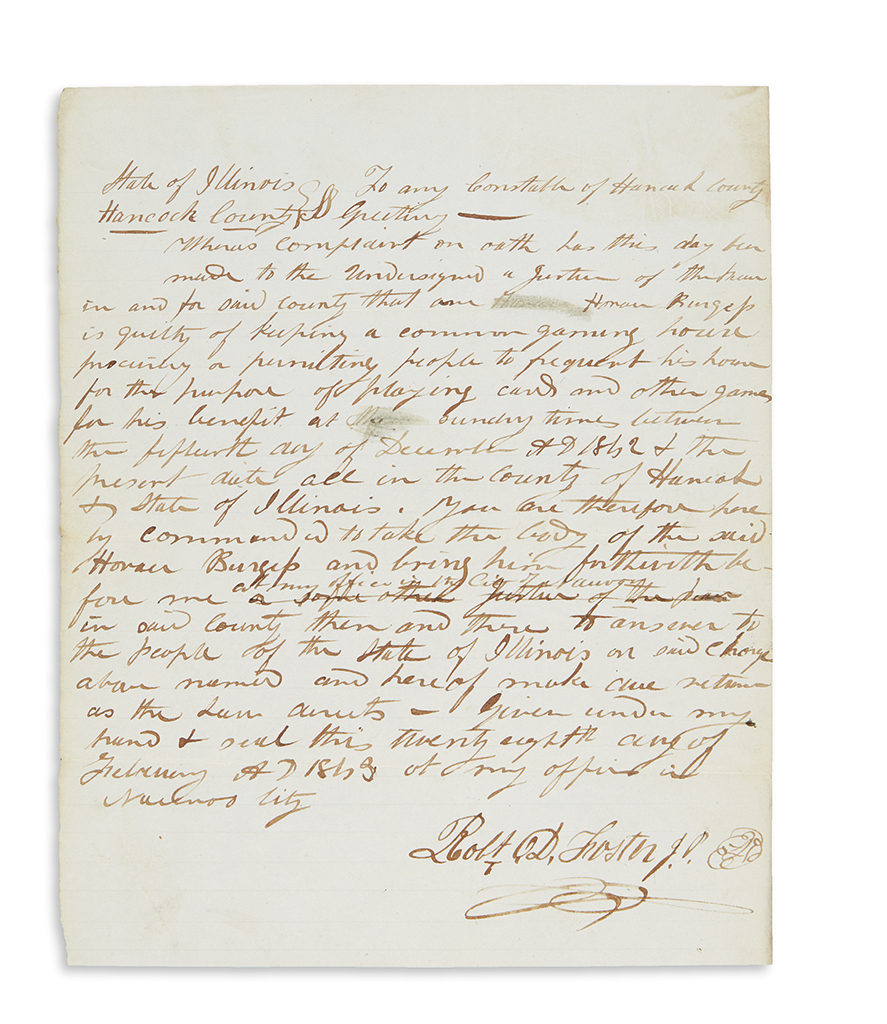 State of Illinois } SS To any Constable of Hancock County
Hancock County } Greeting —
Whereas Complaint on oath has this day been
made to the Undersigned a Justice of the Peace
in and for said County that one Horace Burgess
is guilty of keeping a common gaming house
procuring or permitting people to frequent his house
for the purpose of playing cards and other games
for his benefit at sundry times between
the fifteenth day of December AD 1842 & the
present date all in the County of Hancock
& State of Illinois. You are therefore here
by command d to take the body of the said
Horace Burgess and bring him forthwith be-
at my office in the City of Nauvoo
fore me or some other Justice of the peace
in said County then and there to answer to
the people of the State of Illinois on said Charge
above named and hereof make due return
as the Law directs – Given under my
hand & seal this twenty eighth day of
February AD 1843 at my office in
Nauvoo City
Robt D. Foster J.P.